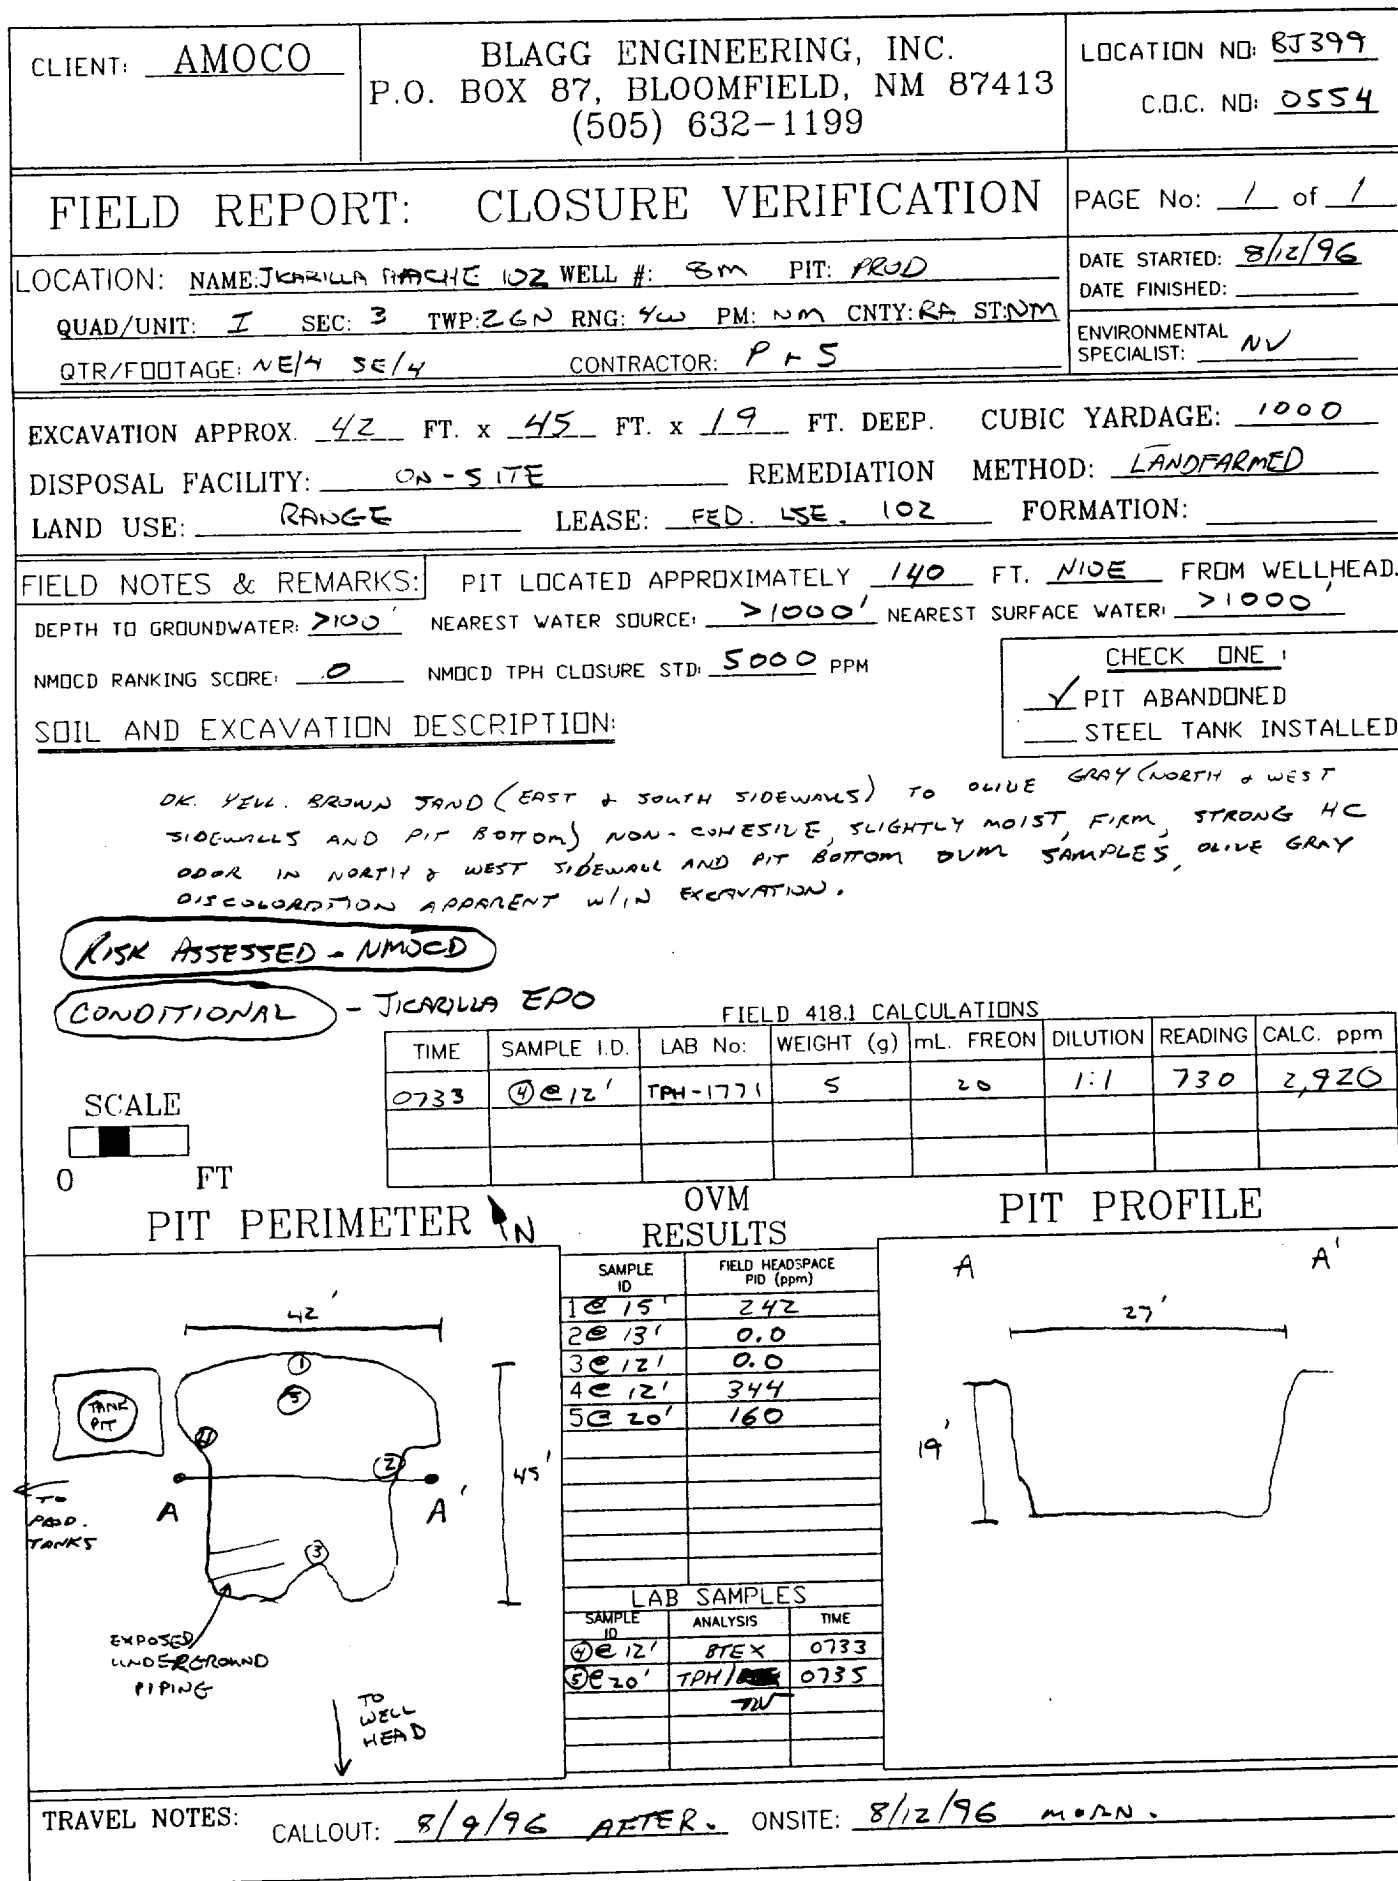 CLIENT: AMOCO
BLAGG ENGINEERING, INC.
P.O. BOX 87, BLOOMFIELD, NM 87413
(505) 632-1199
LOCATION NO: BJ399
C.O.C. NO: 0554
FIELD REPORT: CLOSURE VERIFICATION
PAGE No: 1 of 1
LOCATION: NAME: JICARILLA APACHE 102 WELL #: 8M PIT: PROD
QUAD/UNIT: I SEC: 3 TWP: 26N RNG: 4W PM: NM CNTY: RA ST: NM
QTR/FOOTAGE: NE/4 SE/4 CONTRACTOR: P + S
DATE STARTED: 8/12/96
DATE FINISHED:
ENVIRONMENTAL
SPECIALIST: NV
EXCAVATION APPROX. 42 FT. x 45 FT. x 19 FT. DEEP. CUBIC YARDAGE: 1000
DISPOSAL FACILITY: ON-SITE REMEDIATION METHOD: LANDFARMED
LAND USE: RANGE LEASE: FED. LSE. 102 FORMATION:
FIELD NOTES & REMARKS: PIT LOCATED APPROXIMATELY 140 FT. N10E FROM WELLHEAD.
DEPTH TO GROUNDWATER: >100' NEAREST WATER SOURCE: >1000' NEAREST SURFACE WATER: >1000'
NMOCD RANKING SCORE: 0 NMOCD TPH CLOSURE STD: 5000 PPM
CHECK ONE :
✓ PIT ABANDONED
STEEL TANK INSTALLED
SOIL AND EXCAVATION DESCRIPTION:
DK. YELL. BROWN SAND (EAST & SOUTH SIDEWALLS) TO OLIVE GRAY (NORTH & WEST
SIDEWALLS AND PIT BOTTOM), NON-COHESIVE, SLIGHTLY MOIST, FIRM, STRONG HC
ODOR IN NORTH & WEST SIDEWALL AND PIT BOTTOM OVM SAMPLES, OLIVE GRAY
DISCOLORATION APPARENT W/IN EXCAVATION.
RISK ASSESSED - NMOCD
CONDITIONAL - JICARILLA EPO
FIELD 418.1 CALCULATIONS
TIME SAMPLE I.D. LAB No: WEIGHT (g) mL. FREON DILUTION READING CALC. ppm
0733 ④ @ 12' TPH-1771 5 20 1:1 730 2,920
SCALE
0 FT
PIT PERIMETER N
OVM
RESULTS
PIT PROFILE
SAMPLE ID FIELD HEADSPACE PID (ppm)
1 @ 15' 242
2 @ 13' 0.0
3 @ 12' 0.0
4 @ 12' 344
5 @ 20' 160
LAB SAMPLES
SAMPLE ID ANALYSIS TIME
④ @ 12' BTEX 0733
⑤ @ 20' TPH/ 0735
NV
42'
①
⑤
TANK
PIT
④
②
A A'
45'
③
TO
PROD.
TANKS
EXPOSED
UNDERGROUND
PIPING
TO
WELL
HEAD
A A'
27'
19'
TRAVEL NOTES: CALLOUT: 8/9/96 AFTER. ONSITE: 8/12/96 MORN.